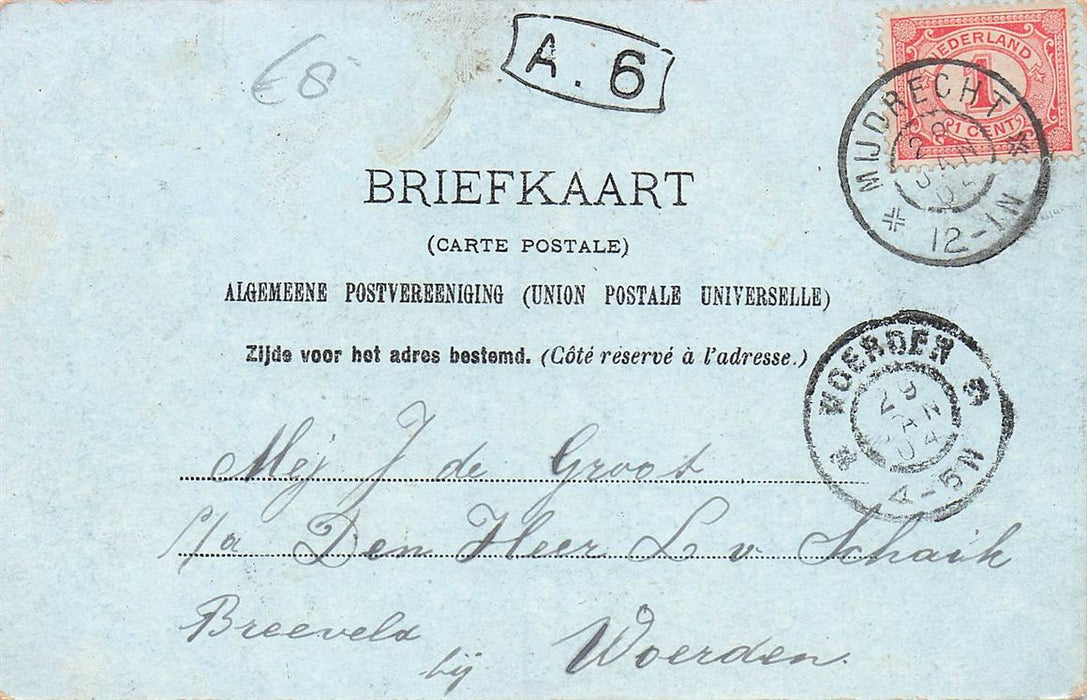 €8
A. 6
NEDERLAND
1
1 CENT
MIJDRECHT
28
JAN
04
12-1N
BRIEFKAART
(CARTE POSTALE)
ALGEMEENE POSTVEREENIGING (UNION POSTALE UNIVERSELLE)
Zijde voor het adres bestemd. (Côté réservé à l'adresse.)
WOERDEN
29
JAN
04
4-5N
Mej J de Groot
p/a Den Heer L v. Schaik
Breeveld
bij Woerden.